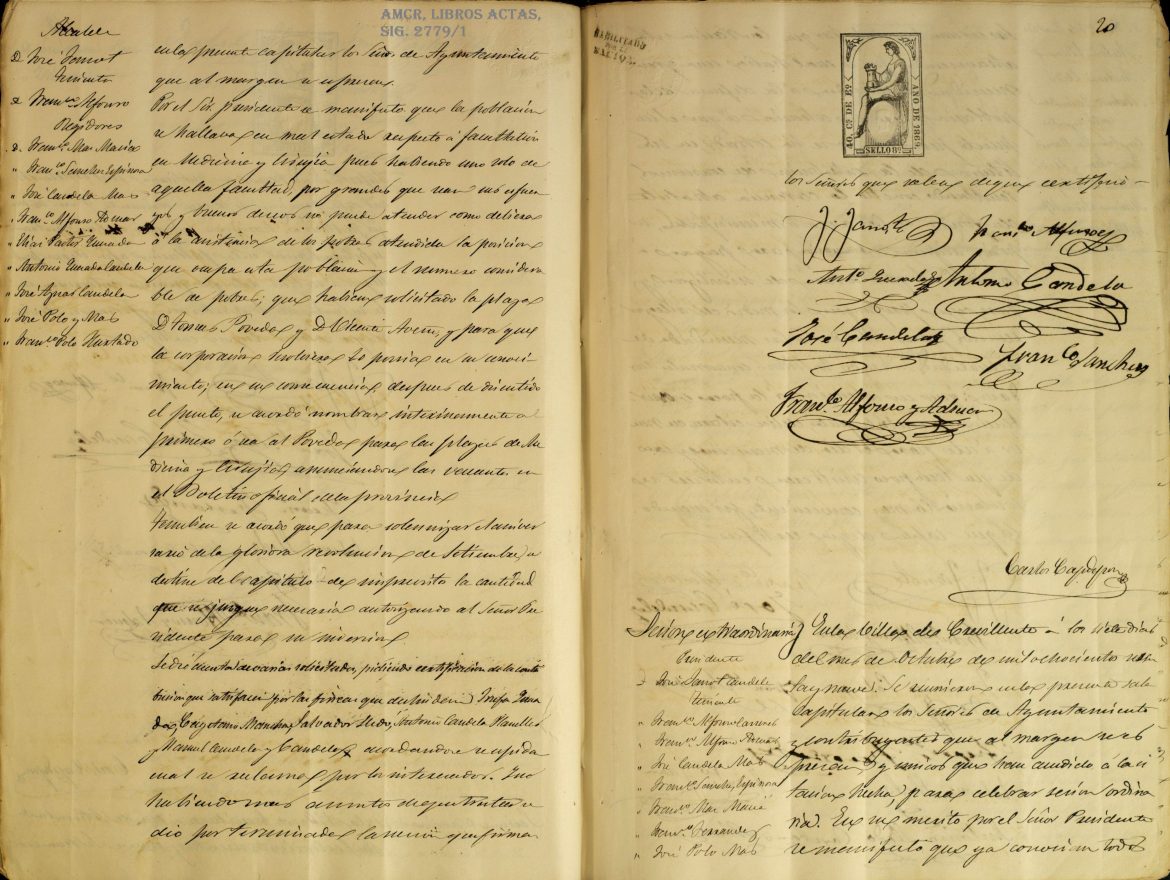 AMCR, LIBROS ACTAS,
SIG. 2779/1
Alcalde
D. José
Teniente
" Franco Alfonso
Regidores
D. Franco Mas Macia
" Franco Espinosa
" José Candela Mas
" Franco Alfonso
" Elías Pastor Quesada
" Antonio Quesada Candela
" José Aznar Candela
" José Polo y Mas
" Franco Polo Hurtado
en la presente capitular los Señores de Ayuntamiento
que al margen se espresan.
Por el Sor. presidente se manifestó que la población
se hallava en mal estado respecto á facultativos
en Medicina y Cirujía pues habiendo uno solo de
aquella facultad, por grandes que sean sus esfuer
zos y buenos deseos no puede atender como debiera
á la asistencia de los pobres atendida la posicion
que ocupa esta poblacion y el numero considera
ble de pobres; que habian solicitado la plaza
D. Tomas Povedas y D. Vicente y para que
la corporacion resolviese lo ponia en su conoci-
miento; en su consecuencia, despues de discutido
el punto, se acordó nombrar interinamente al
primero ó sea al Poveda para las plazas de Me
dicina y Cirujía, anunciandose las vacantes en
el Boletin oficial de la provincia
Tambien se acordó que para solemnizar el aniver
sario de la gloriosa revolucion de Setiembre, se
destine del capitulo de imprevistos la cantidad
que se juzgue necesaria autorizando al Señor Pre
sidente para su inversion
Se dió cuenta de varias solicitudes, pidiendo certificacion de la contri
bucion que satisfacen por las fincas que deslindan
Cayetano Salvador Antonio Candela
y Manuel y Candela, acordandose se espida
cual se reclama por los interesados. Y no
habiendo mas asuntos de que tratar se
dió por terminada la sesion que firman
20
HABILITADO
POR LA
NACION.
40 Cs. DE Eo. AÑO DE 1869
SELLO 8º
los Señores que saben de que certifico.
J. Franco Alfonso
Anto. Quesada Antonio Candela
José Candela
Franco Sanchez
Franco Alfonso y
Carlos
Sesion extraordinaria
Presidente
D. José Candela
Teniente
" Franco Alfonso
" Franco Alfonso
" José Candela Mas
" Franco Sanchez Espinosa
" Franco Mas Macia
" Franco Fernandez
" José Polo Mas
En la Villa de Crevillente á los siete dias
del mes de Octubre de mil ochocientos sesen
ta y nueve. Se reunieron en la presente sala
capitular los Señores de Ayuntamiento
y contribuyentes que al margen se es
presan y unicos que han acudido á la ci
tacion hecha, para celebrar sesion ordina
ria. En su merito por el Señor Presidente
se manifestó que ya conocian todos